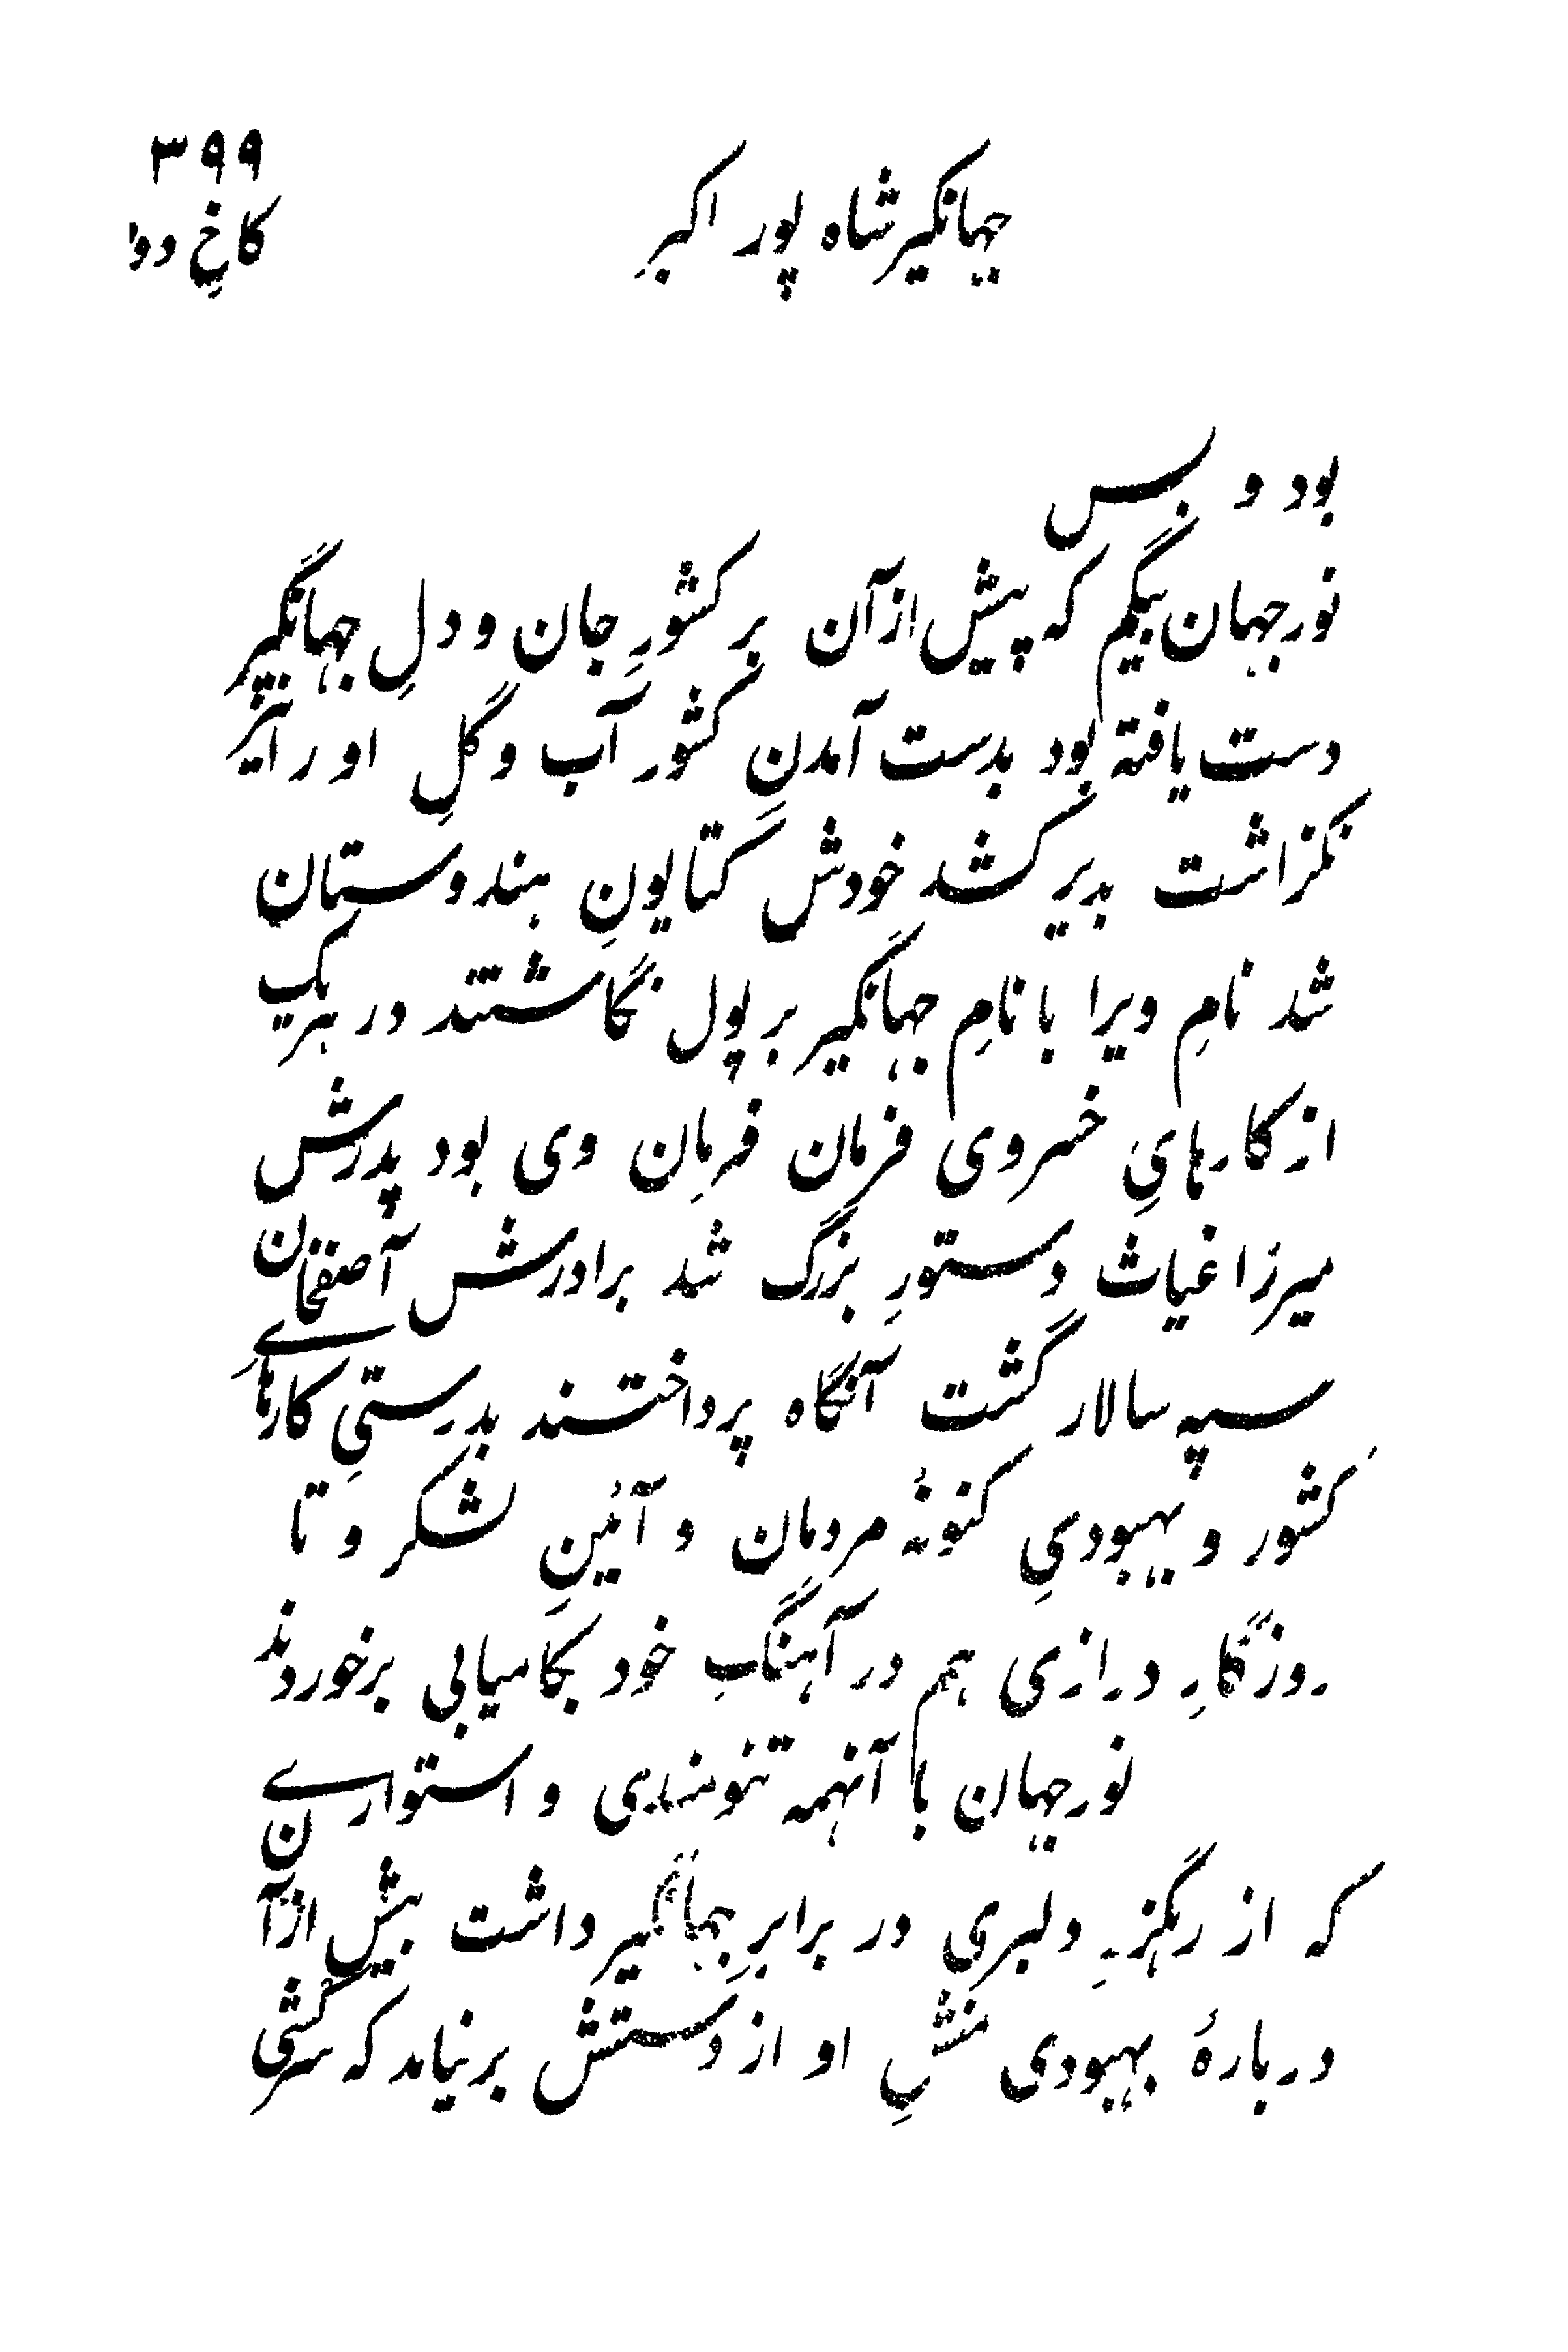 ۳۹۹
جهانگیر شاه پور اکبر
کاخِ دو
بود و بس
نورجهان بیگم که پیش از آن بر کشورِ جان و دلِ جهانگیر
دست یافته بود بدست آمدنِ کشور آب و گلِ او را نیز
نگزاشت بدیر کشد خودش کتایونِ هندوستان
شد نامِ ویرا با نامِ جهانگیر بر پول نگاشتند در هر یک
از کارهایِ خسروی فرمان فرمان وی بود پدرش
میرزا غیاث دستورِ بزرگ شد برادرش آصفخان
سپه سالار گشت آنگاه پرداختند بدرستیِ کارهای
کشور و بهبودیِ کنونهٔ مردمان و آئینِ لشکر و تا
روزگارِ درازی هم در آهنگِ خود بکامیابی برخوردند
نورجهان با آنهمه تنومندی و استواری
که از رهگزرِ دلبری در برابرِ جهانگیر داشت بیش از آن
دربارهٔ بهبودی منشِ او از دستش برنیامد که سرکشی